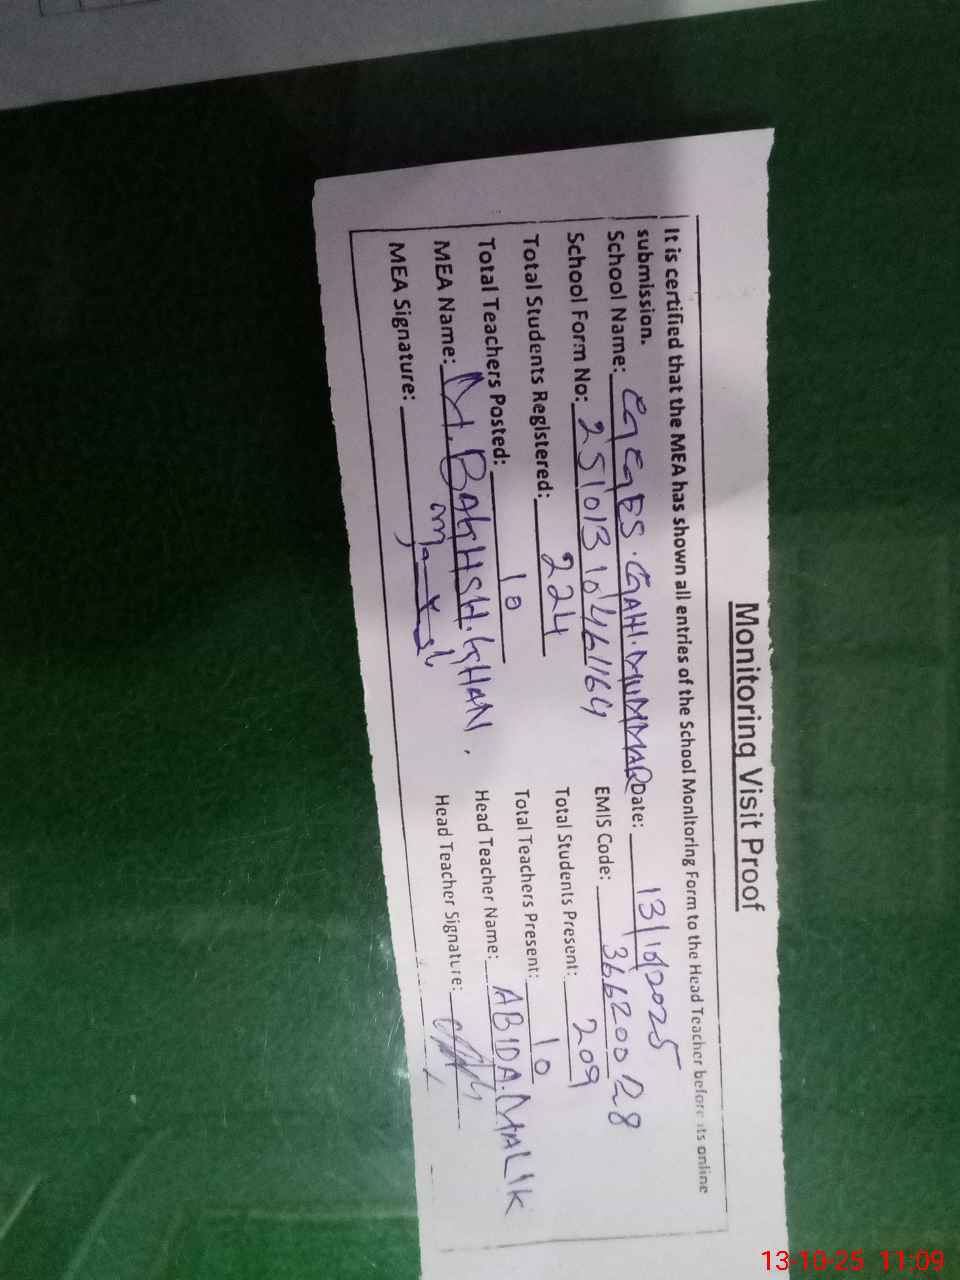 Monitoring Visit Proof
It is certified that the MEA has shown all entries of the School Monitoring Form to the Head Teacher before its online
submission.
School Name: GGES. GAHI. MUMMAR Date: 13/10/2025
School Form No: 25101310461164 EMIS Code: 36620028
Total Students Registered: 224 Total Students Present: 209
Total Teachers Posted: 10 Total Teachers Present: 10
MEA Name: M. BAKHSH. KHAN. Head Teacher Name: ABIDA. MALIK
MEA Signature: Head Teacher Signature:
13-10-25 11:09